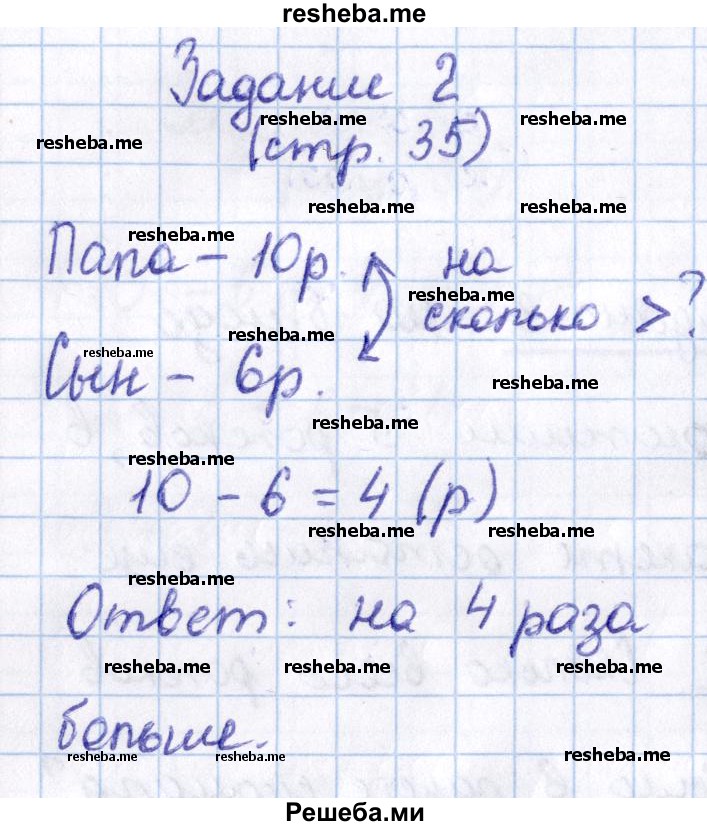 resheba.me
Задание 2
resheba.me resheba.me resheba.me
(стр. 35)
resheba.me resheba.me
Папа – 10р. на
resheba.me
resheba.me
сколько >?
resheba.me
resheba.me
Сын – 6р.
resheba.me
resheba.me
resheba.me
10 – 6 = 4 (р)
resheba.me resheba.me
resheba.me
Ответ: на 4 раза
resheba.me resheba.me resheba.me
больше.
resheba.me resheba.me resheba.me
Решеба.ми